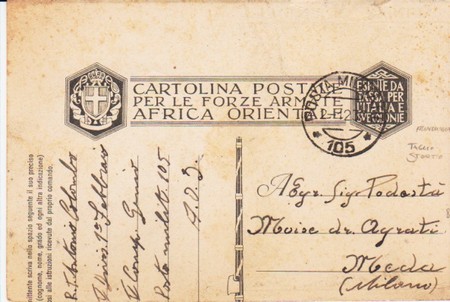 CARTOLINA POSTA
PER LE FORZE ARMATE
AFRICA ORIENT
ESENTE DA
TASSA PER
L'ITALIA E
SUE COLONIE
105
TAGLIO
STORTO
Egr. Sig. Podestà
Moise dr. Agrati
Meda
(Milano)
mittente scriva nello spazio seguente il suo preciso
(cognome, nome, grado ed ogni altra indicazione)
si alle istruzioni ricevute dal proprio comando.
Antonio Colombo
1° Febbraio
Genio
Posta milit. 105
A.O.I.